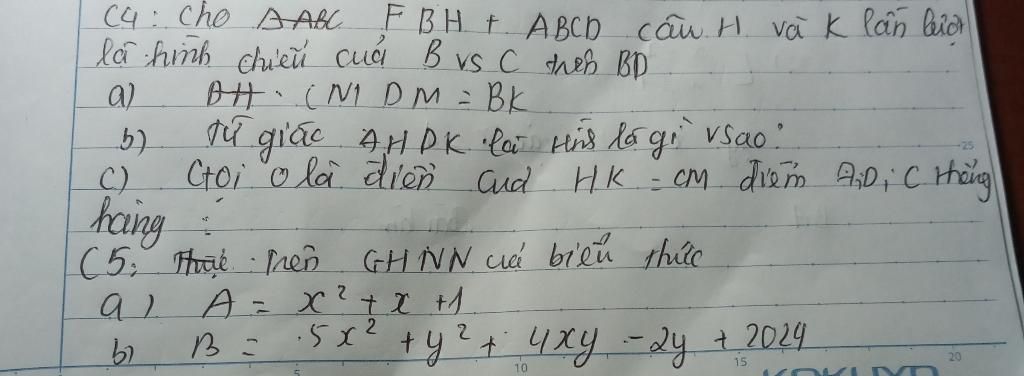 C4: Cho ABC FBH + ABCD câu H và K lần lượt
là hình chiếu của B vs C trên BD
a) BH. CM DM = BK
b) Tứ giác AHDK là Hhs là gì vsao:
C) Gọi O là điển cuả HK = CM điểm A,D, C thẳng
hàng :
C5: Thực Trên GHNN cuả biểu thức
a) A = x² + x + 1
b) B = 5x² + y² + 4xy - 2y + 2024
5 10 15 20
25